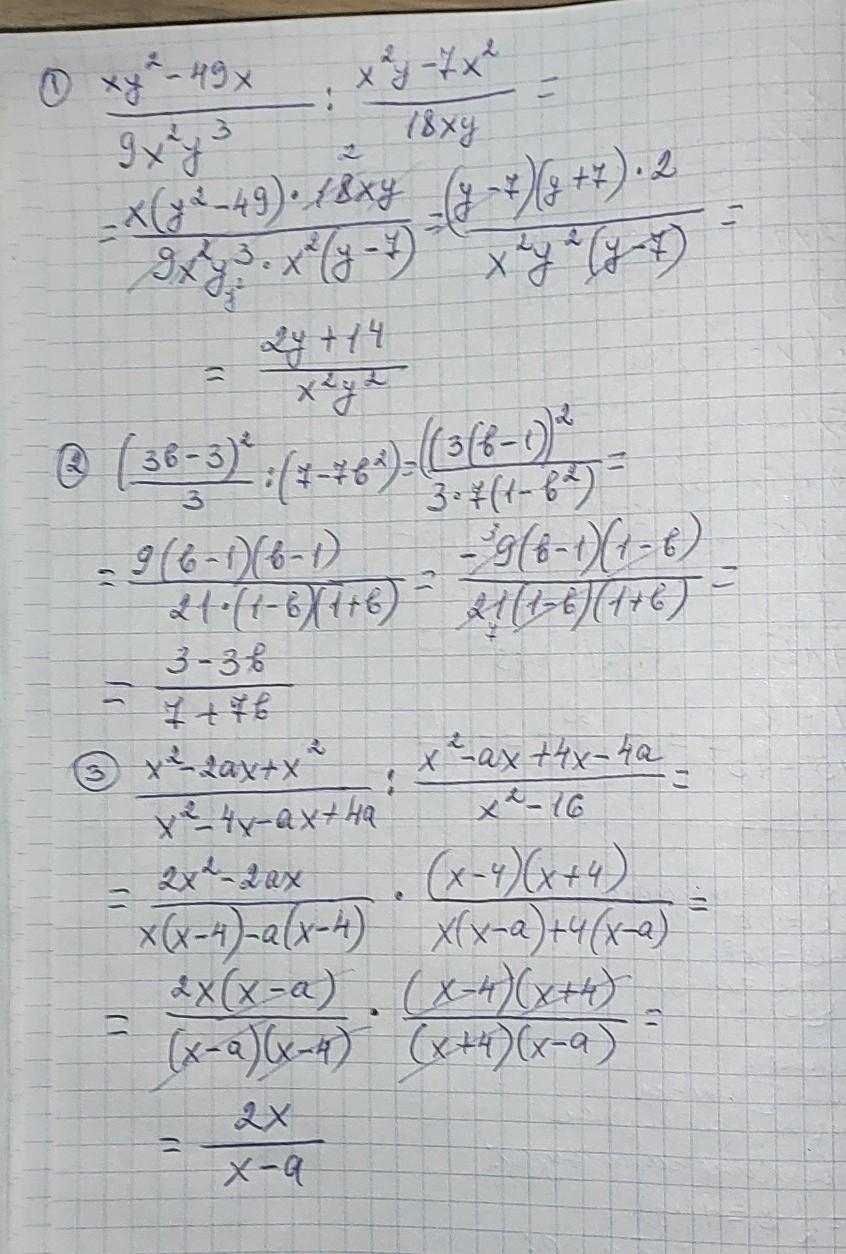 ① (xy² - 49x)/(9x²y³) : (x²y - 7x²)/(18xy) =
= (x(y² - 49) · 18xy 2)/(9x²y³ y² · x²(y - 7)) = ((y - 7)(y + 7) · 2)/(x²y²(y - 7)) =
= (2y + 14)/(x²y²)
② (3в - 3)²/3 : (7 - 7в²) = ((3(в - 1))²/(3 · 7(1 - в²)) =
= 9(в - 1)(в - 1)/(21 · (1 - в)(1 + в)) = -³9(в - 1)(1 - в)/(21 7 (1 - в)(1 + в)) =
= (3 - 3в)/(7 + 7в)
③ (x² - 2ax + x²)/(x² - 4x - ax + 4a) : (x² - ax + 4x - 4a)/(x² - 16) =
= (2x² - 2ax)/(x(x - 4) - a(x - 4)) · ((x - 4)(x + 4))/(x(x - a) + 4(x - a)) =
= (2x(x - a))/((x - a)(x - 4)) · ((x - 4)(x + 4))/((x + 4)(x - a)) =
= 2x/(x - a)